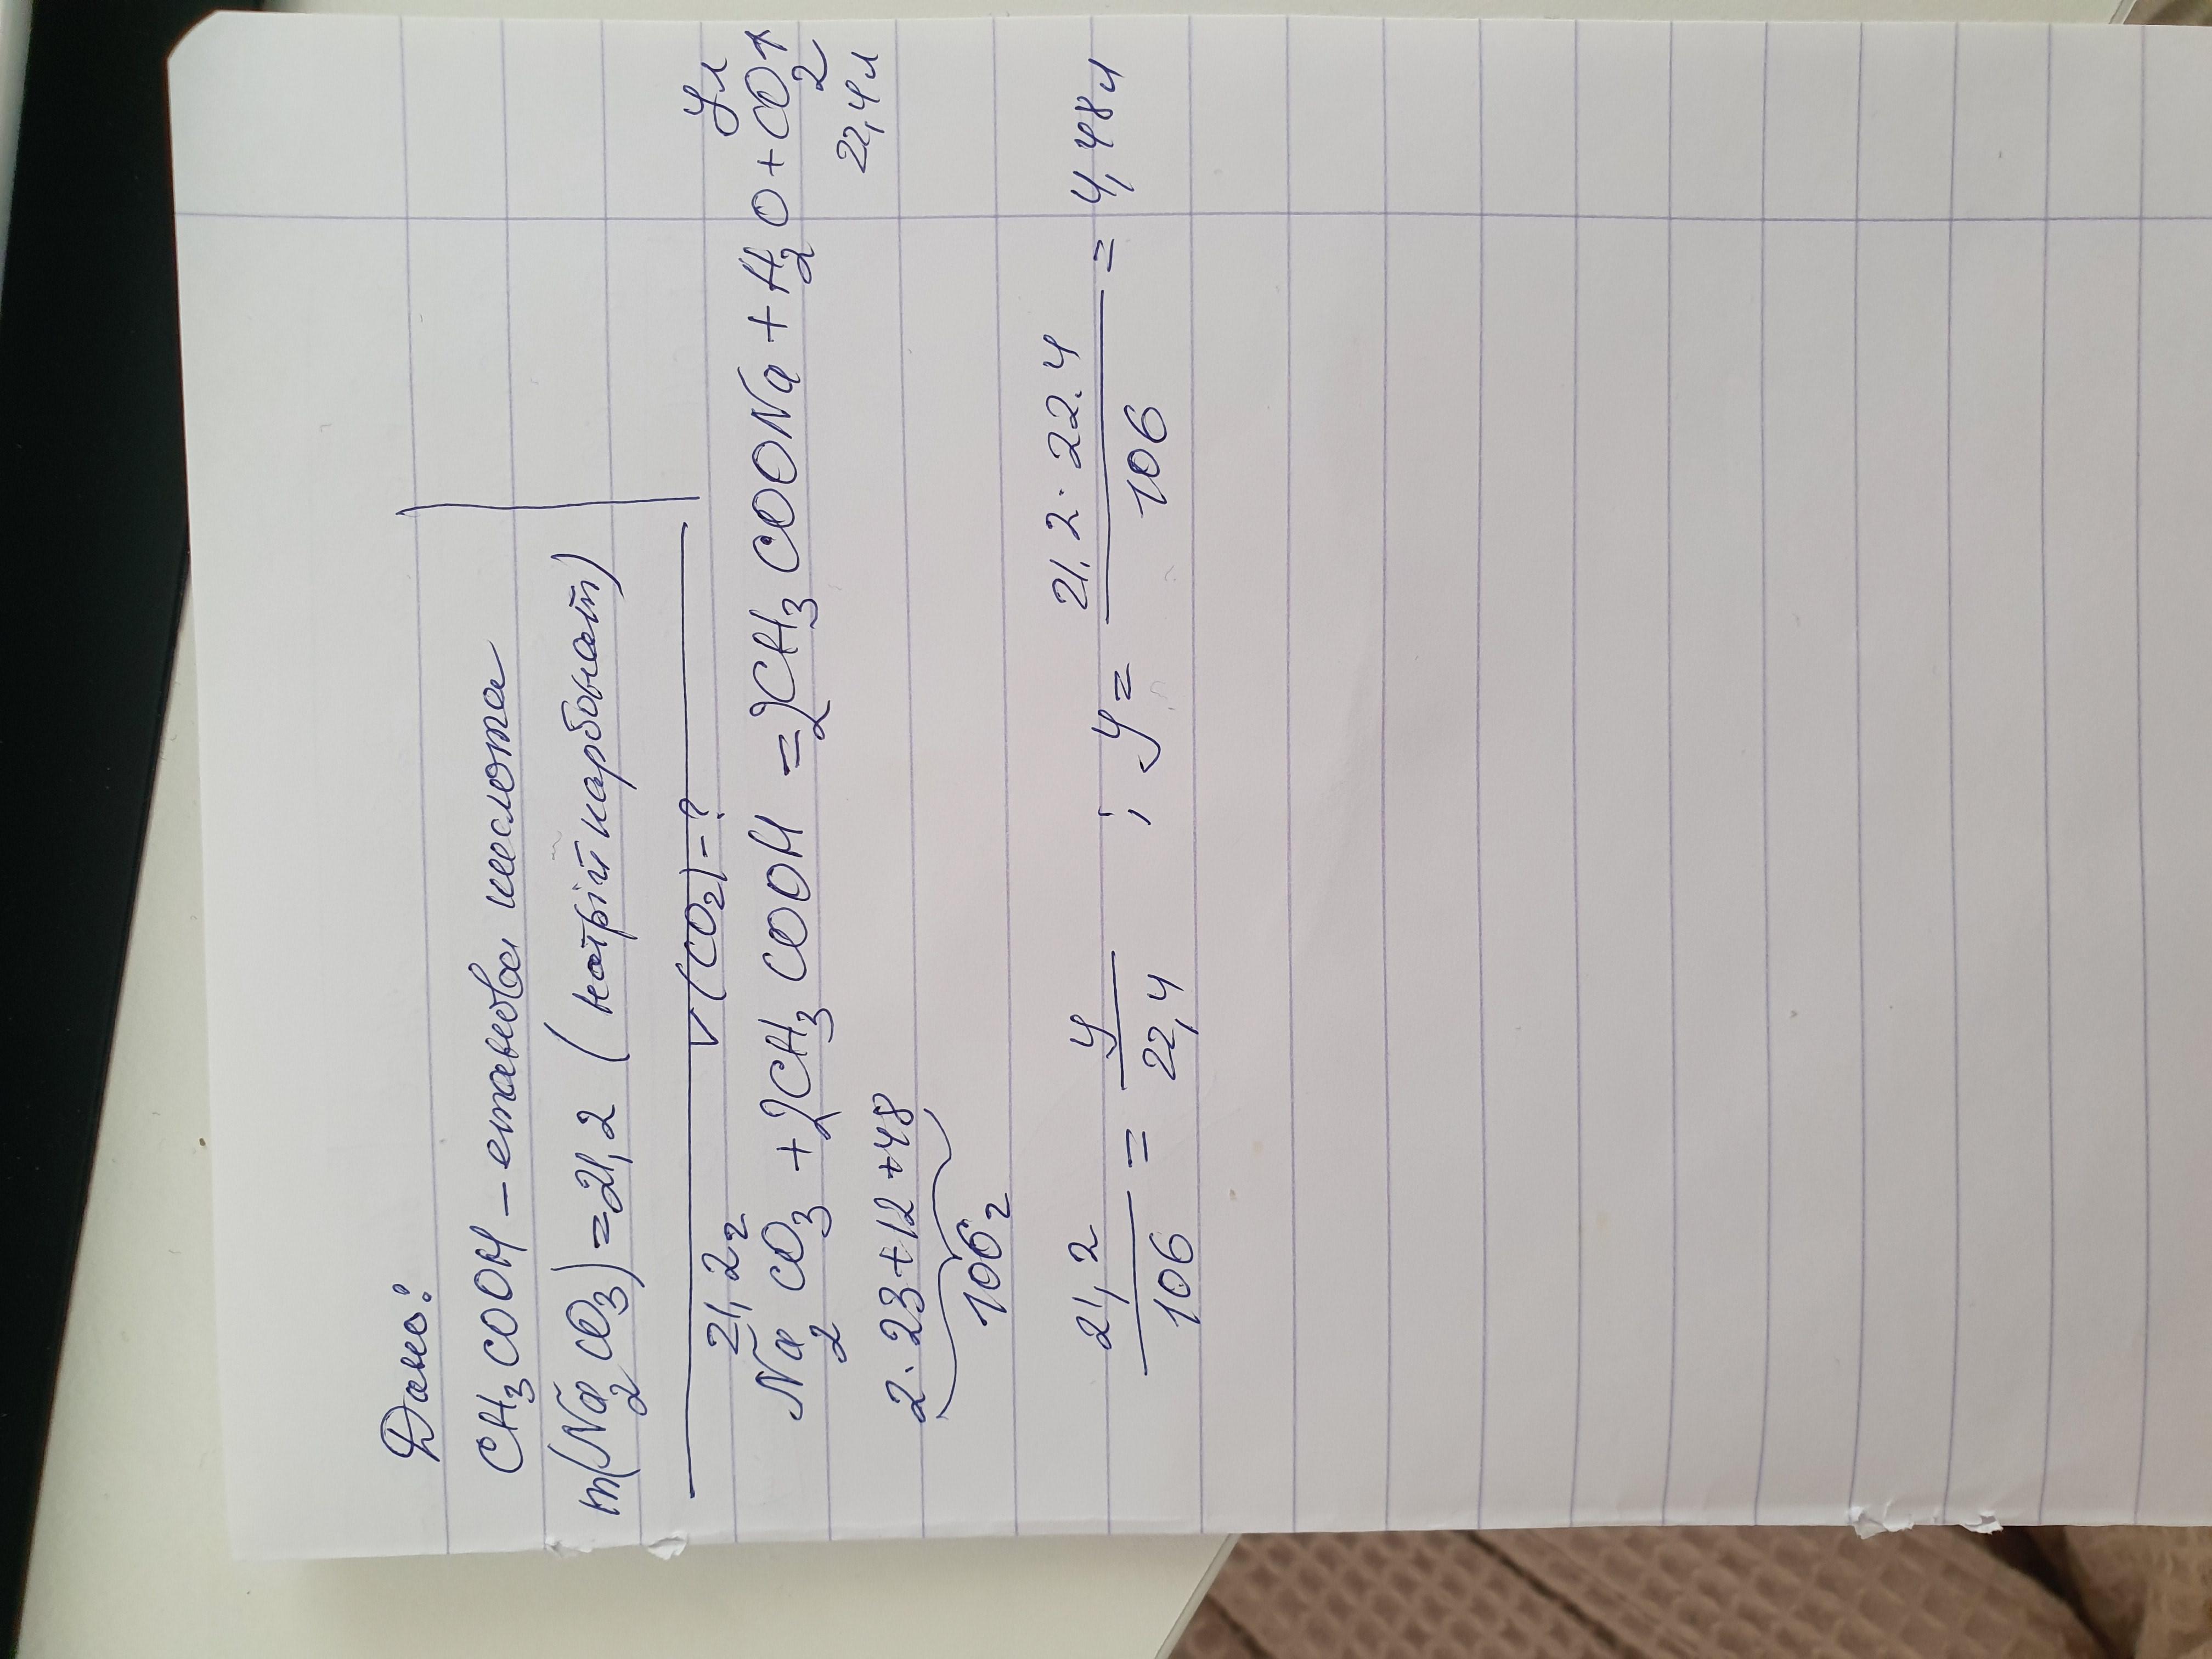 Дано:
CH₃COOH – етанова кислота
m(Na₂CO₃) = 21,2 (натрій карбонат)
V(CO₂) – ?
21,2г yл
Na₂CO₃ + 2CH₃COOH = 2CH₃COONa + H₂O + CO₂↑
2·23+12+48 22,4л
106г
21,2/106 = y/22,4 ; y = 21,2·22.4/106 = 4,48л